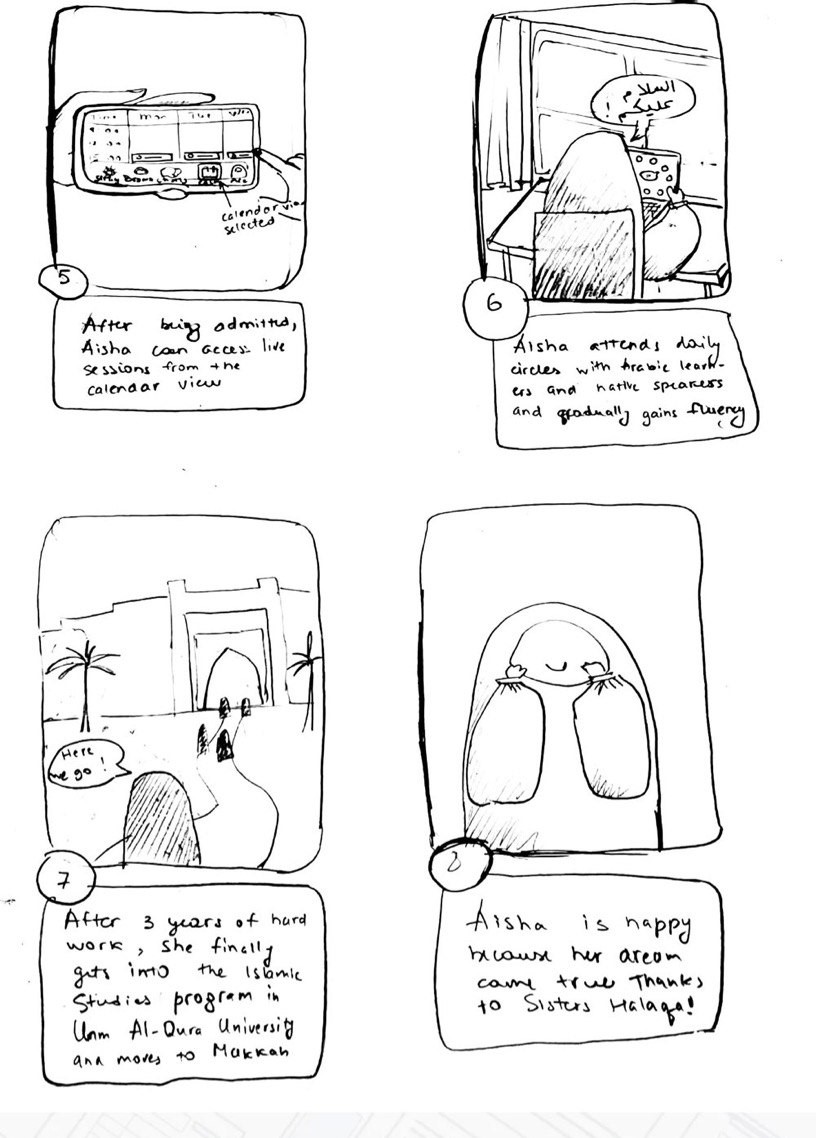 Time Mon Tue Wed
calendar view
selected
5
After being admitted,
Aisha can access live
sessions from the
calendar view
السلام
عليكم !
6
Aisha attends daily
circles with Arabic learn-
ers and native speakers
and gradually gains fluency
Here
we go !
7
After 3 years of hard
work, she finally
gets into the Islamic
Studies program in
Umm Al-Qura University
and moves to Makkah
8
Aisha is happy
because her dream
came true Thanks
to Sisters Halaqa!